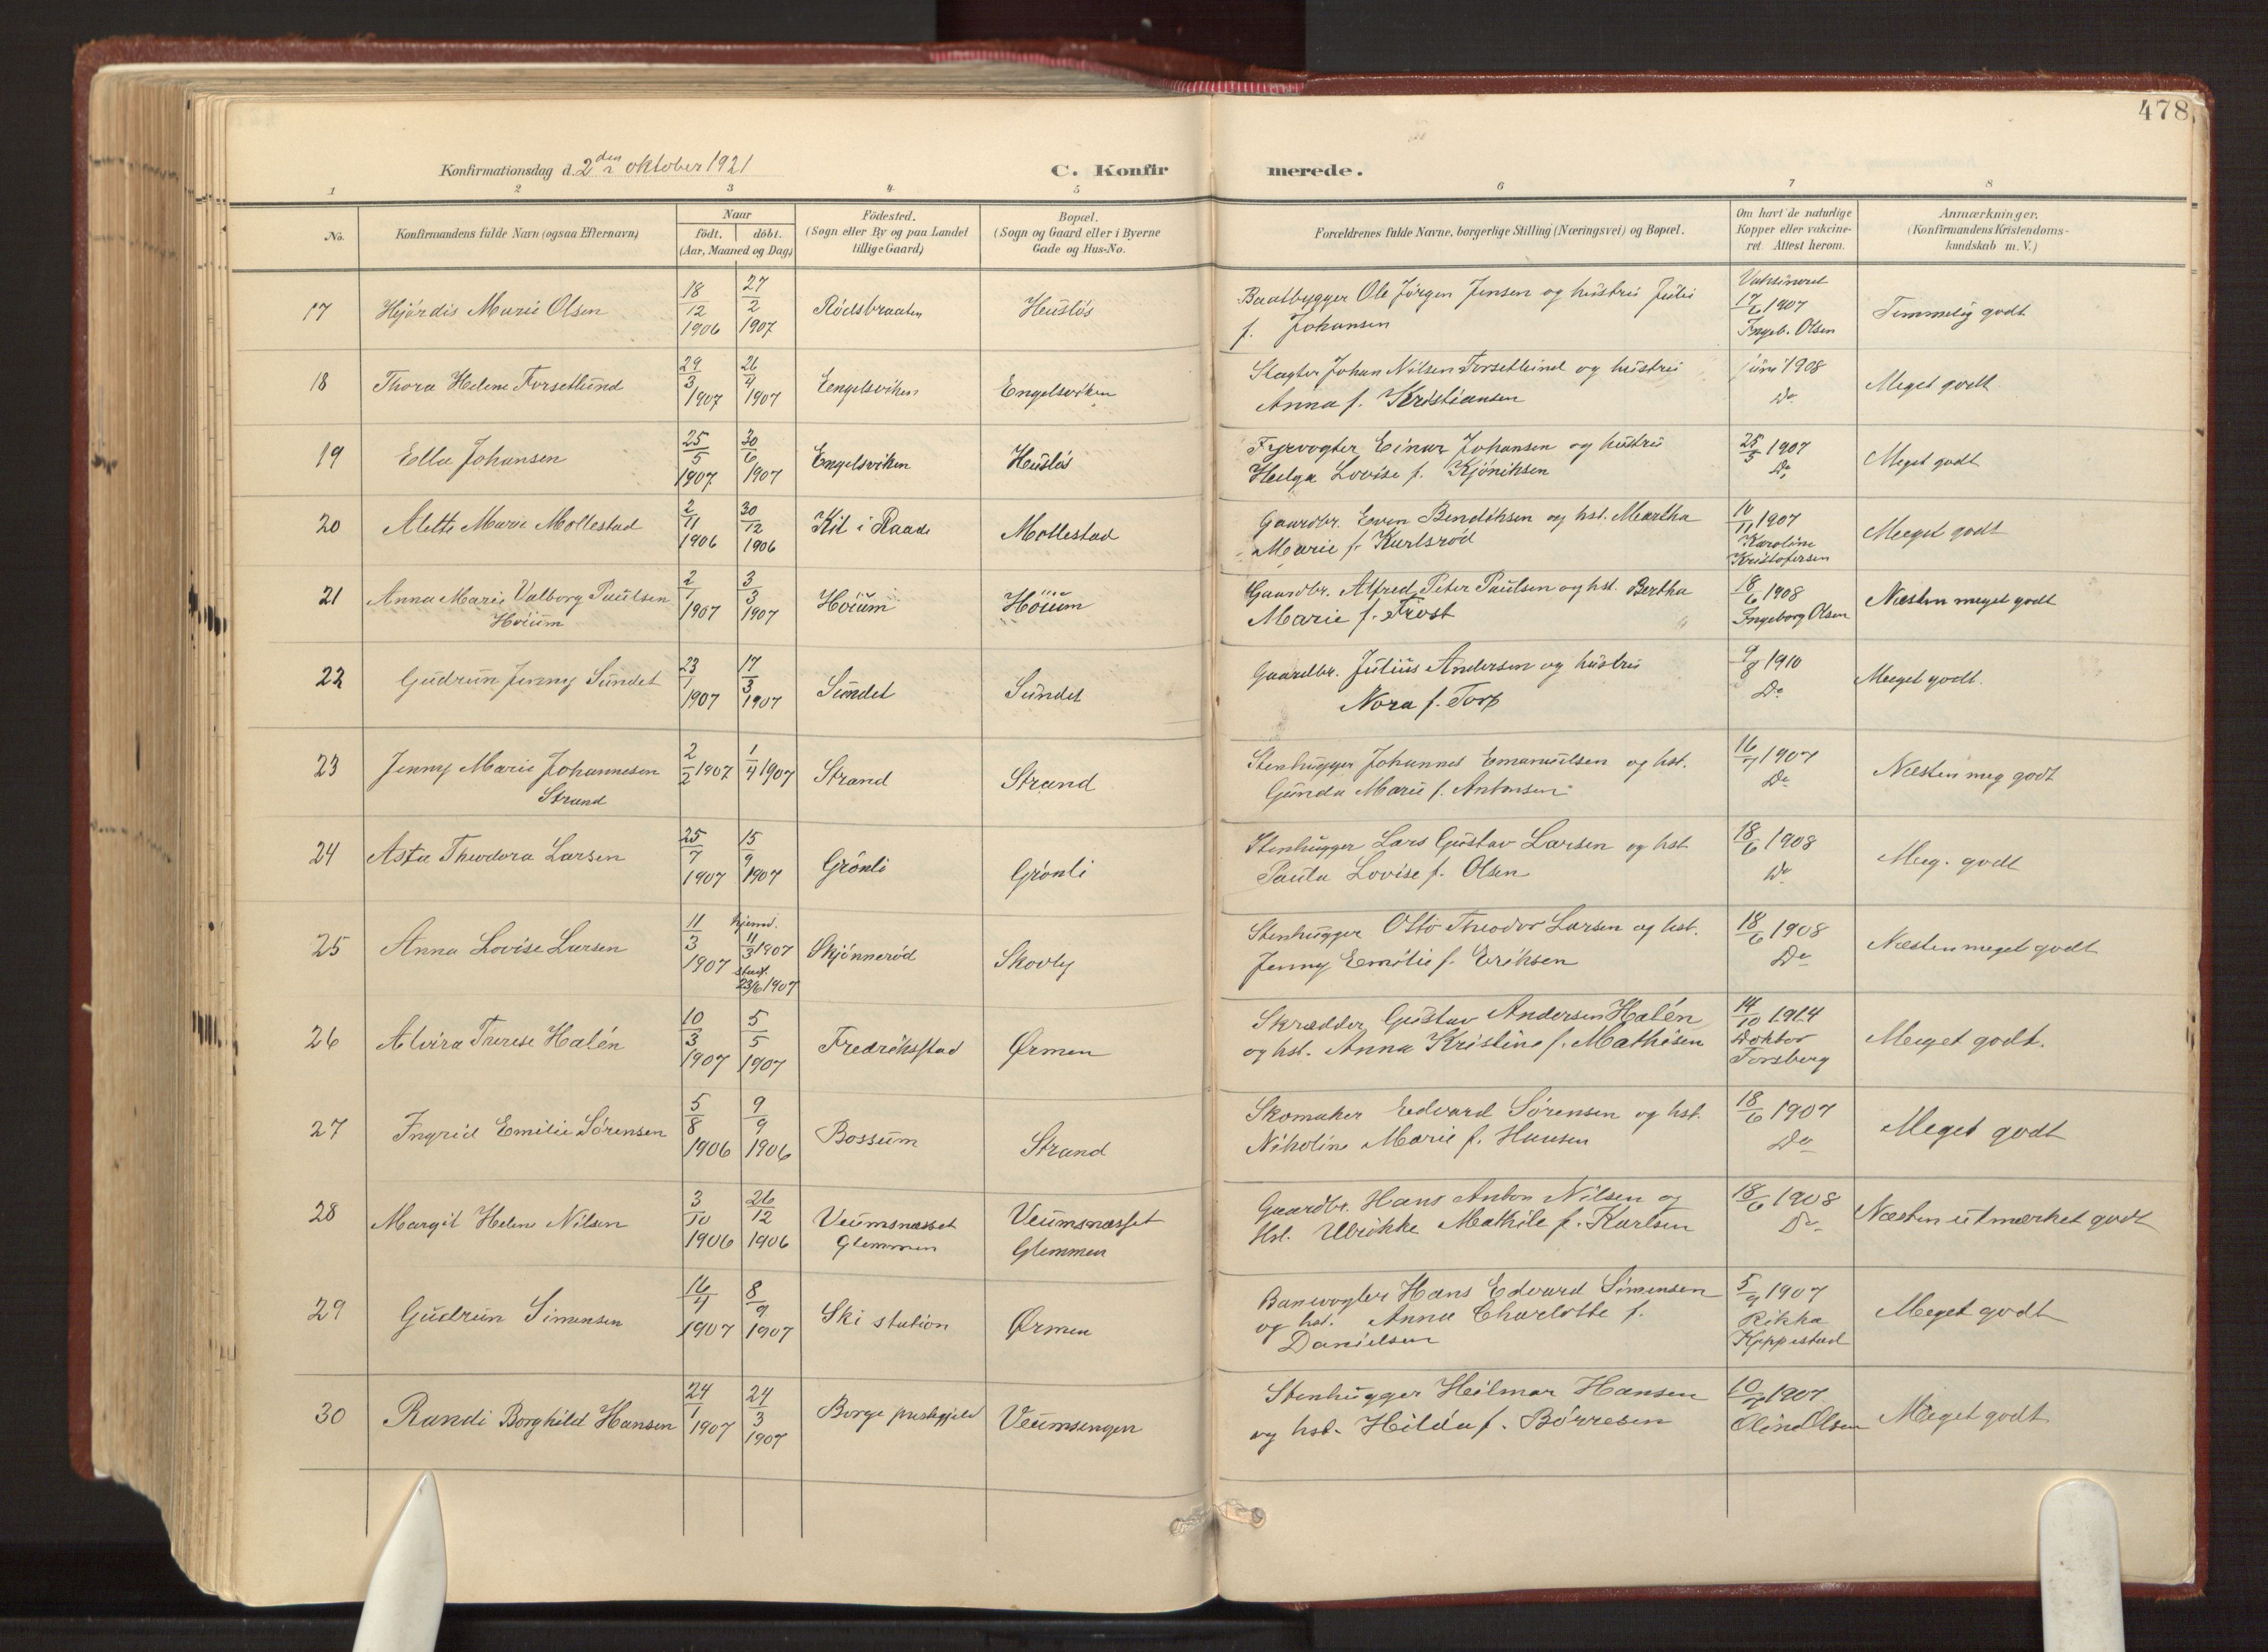 478
Konfirmationsdag d. 2den oktober 1921
C. Konfirmerede.
1 2 3 4 5 6 7 8
No.
Konfirmandens fulde Navn (ogsaa Efternavn)
Naar
födt. döbt.
(Aar, Maaned og Dag)
Födested.
(Sogn eller By og paa Landet
tillige Gaard)
Bopæl.
(Sogn og Gaard eller i Byerne
Gade og Hus-No.
Forældrenes fulde Navne, borgerlige Stilling (Næringsvei) og Bopæl.
Om havt de naturlige
Kopper eller vakcine-
ret. Attest herom.
Anmærkninger.
(Konfirmandens Kristendoms-
kundskab m. V.)
17 Hjördis Marie Olsen 18/12 1906 27/2 1907 Rödsbraaten Huslös
Baatbygger Ole Jörgen Jensen og hustru Juli
f. Johansen
Vaksineret
17/6 1907
Ingeb. Olsen
Temmelig godt
18 Thora Helene Forsetlund 29/3 1907 26/4 1907 Engelsviken Engelsviken
Slagter Johan Nilsen Forsetlund og hustru
Anna f. Kristiansen
juni 1908
Do
Meget godt
19 Ella Johansen 25/5 1907 30/6 1907 Engelsviken Huslös
Fyrvogter Einar Johansen og hustru
Helga Lovise f. Kjöniksen
25/5 1907
Do
Meget godt
20 Alette Marie Mollestad 2/11 1906 30/12 1906 Kil i Raade Mollestad
Gaardbr. Even Bendiksen og hst. Martha
Marie f. Karlsröd
10/11 1907
Karoline
Kristofersen
Meget godt
21 Anna Marie Valborg Paulsen
Höium
2/1 1907 3/3 1907 Höium Höium
Gaardbr. Alfred Peter Paulsen og hst. Bertha
Marie f. Frost
18/6 1908
Ingeborg Olsen
Næsten meget godt
22 Gudrun Jenny Sundet 23/1 1907 17/3 1907 Sundet Sundet
Gaardbr. Julius Andersen og hustru
Nora f. Torp
9/8 1910
Do
Meget godt.
23 Jenny Marie Johannesen
Strand
2/2 1907 1/4 1907 Strand Strand
Stenhugger Johannes Emanuelsen og hst.
Gunda Marie f. Antonsen
16/7 1907
Do
Næsten meg godt
24 Asta Theodora Larsen 25/7 1907 15/9 1907 Grönli Grönli
Stenhugger Lars Gustav Larsen og hst
Paula Lovise f. Olsen
18/6 1908
Do
Meg. godt
25 Anna Lovise Larsen 11/3 1907 hjemd. 11/3 1907 stadf. 23/6 1907 Skjönneröd Skovly
Stenhugger Otto Theodor Larsen og hst.
Jenny Emilie f. Eriksen
18/6 1908
Do
Næsten meget godt
26 Alvira Therese Halén 10/3 1907 5/5 1907 Fredriksstad Ørmen
Skrædder Gustav Andersen Halén
og hst. Anna Kristine f. Mathisen
14/10 1914
Doktor
Forsberg
Meget godt.
27 Ingrid Emilie Sörensen 5/8 1906 9/9 1906 Bossum Strand
Skomaker Edvard Sörensen og hst.
Nikoline Marie f. Hansen
18/6 1907
Do
Meget godt
28 Margit Helene Nilsen 3/10 1906 26/12 1906 Veumsnæsset
Glemmen
Veumsnæsset
Glemmen
Gaardbr. Hans Anton Nilsen og
Hst. Ulrikke Mathile f. Karlsen
18/6 1908
Do
Næsten utmerket godt
29 Gudrun Simensen 16/4 1907 8/9 1907 Ski station Ørmen
Banevogter Hans Edvard Simensen
og hst. Anna Charlotte f.
Danielsen
5/9 1907
Rikka
Kippestad
Meget godt
30 Randi Borghild Hansen 24/1 1907 24/3 1907 Borge prestegjeld Veumsengen
Stenhugger Hilmar Hansen
og hst. Hilda f. Börresen
1907
Olind Olsen
Meget godt